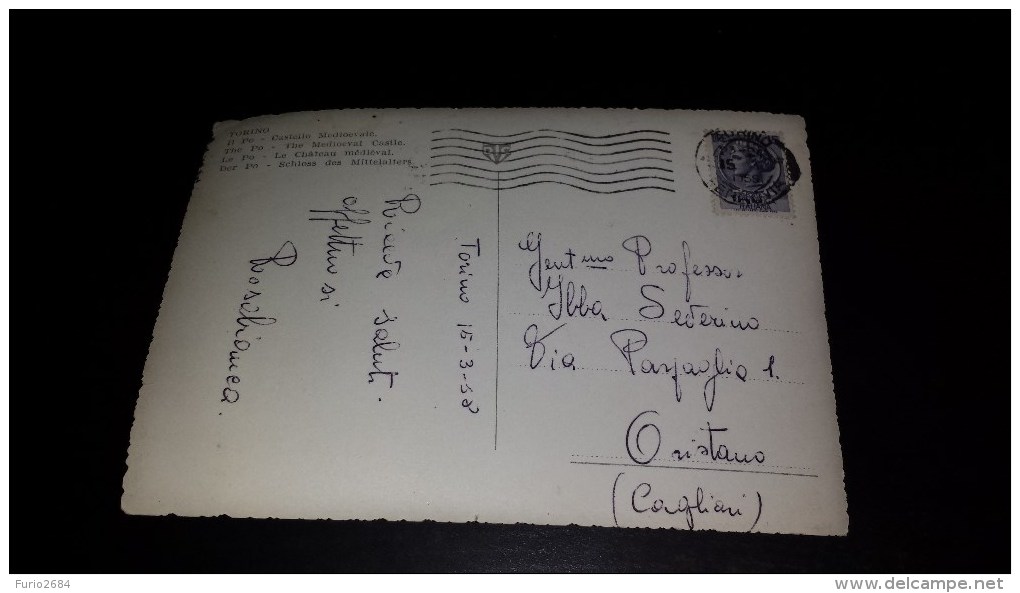 TORINO
Il Po - Castello Medioevale.
The Po - The Medioeval Castle.
Le Po - Le Château médiéval.
Der Po - Schloss des Mittelalters
Torino 15-3-58
Riceva saluti
affettuosi
Rosabianca.
Gent.mo Professor
Ibba Severino
Via Parpaglia 1.
Oristano
(Cagliari)
ITALIANA
Furio2684
delcampe.net